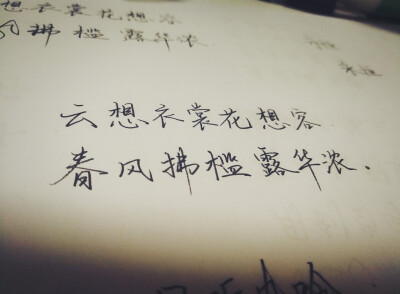 想衣裳花想容
风拂槛露华浓
云想衣裳花想容
春风拂槛露华浓.